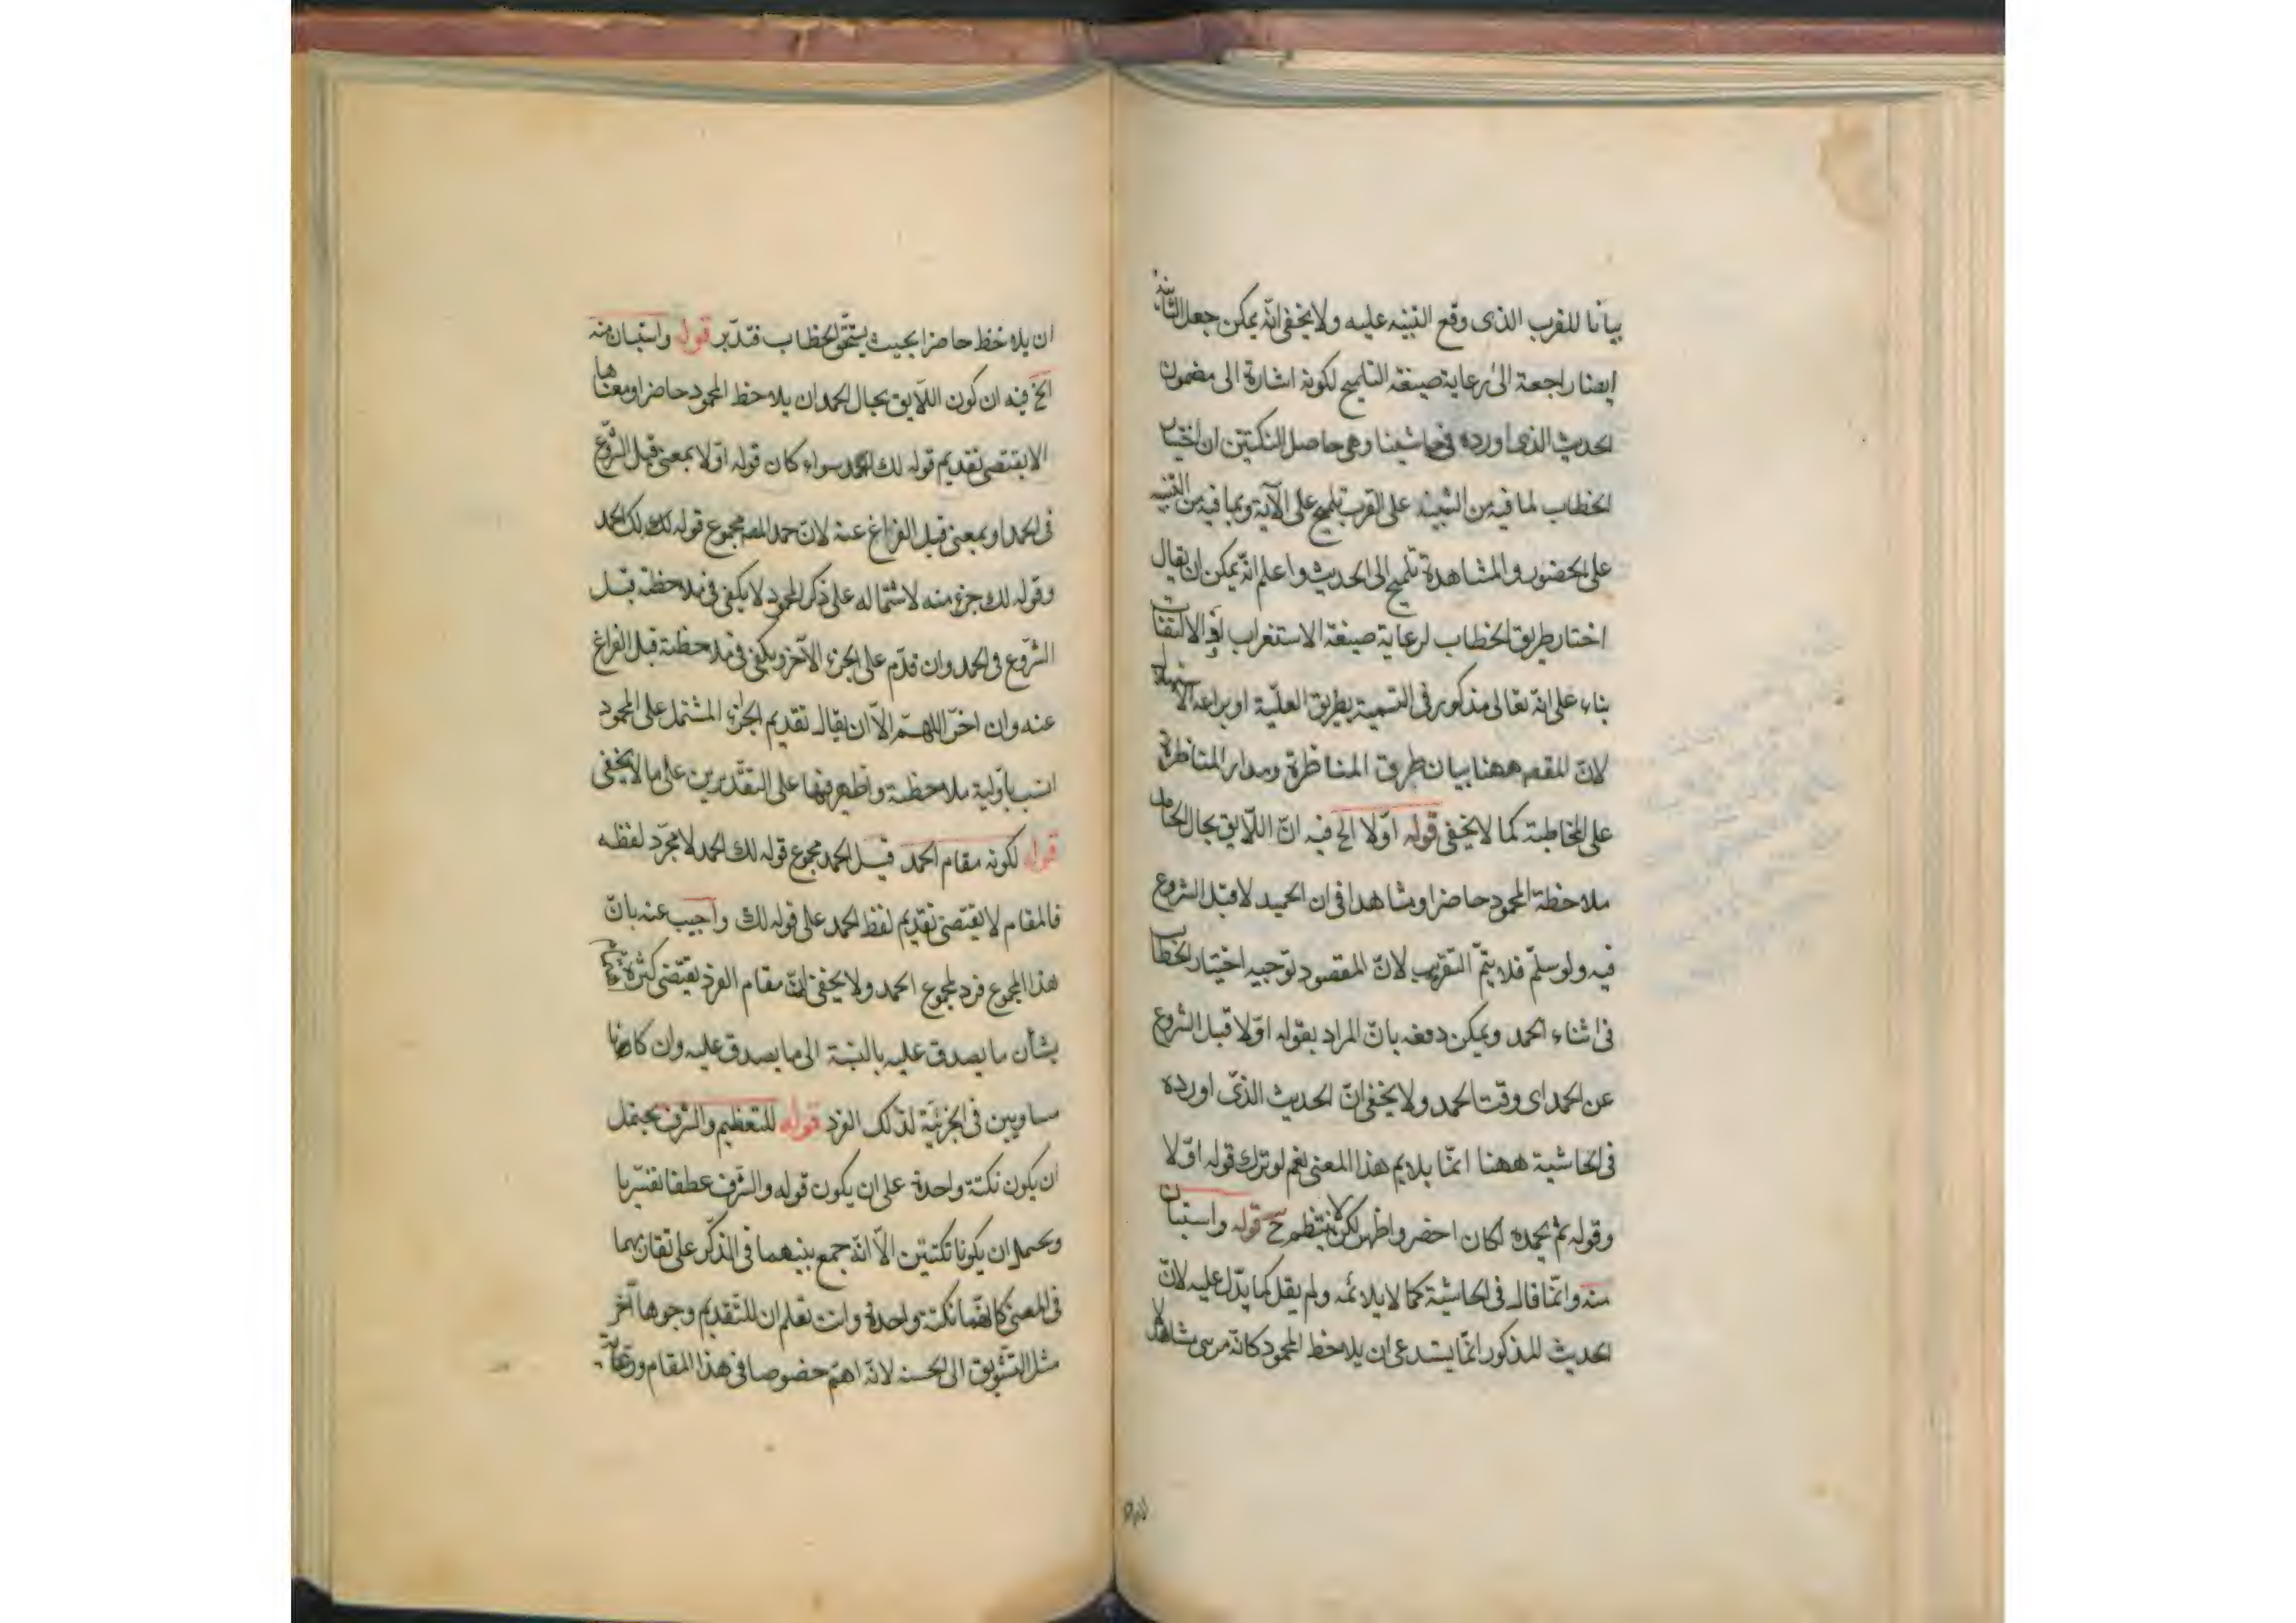 بيانا للقرب الذى وقع التنبيه عليه ولا يخفى انه يمكن جعل الثانية
ايضا راجعة الى رعاية صيغة التلميح لكونه اشارة الى مضمون
الحديث الذى اورده فى حاشيتنا وهى حاصل النكتتين ان اختيار
الخطاب لما فيه من التنبيه على القرب تلميح على الآية وبما فيه من التنبيه
على الحضور والمشاهدة تلميح الى الحديث واعلم انه يمكن ان يقال
اختار طريق الخطاب لرعاية صيغة الاستغراب او الالتفات
بناء على انه تعالى مذكور فى التسمية بطريق الغيبة او براعة الاستهلال
لان المقصد ههنا بيان طرق المناظرة ومدار المناظرة
على المخاطبة كما لا يخفى قوله اوّلا الخ فيه انّ اللايق بحال الحامد
ملاحظة المحمود حاضرا ومشاهدا فى ان الحميد لا قبل الشروع
فيه ولو سلّم فلا يتمّ التقريب لانّ المقصود توجيه اختيار الخطاب
فى اثناء الحمد ويمكن دفعه بانّ المراد بقوله اوّلا قبل الشروع
عن الحمد اى وقت الحمد ولا يخفى انّ الحديث الذى اورده
فى الحاشية ههنا انّما يلايم هذا المعنى نعم لو ترك قوله اوّلا
وقوله ثم يحمده لكان احضر واظهر لكن لا ينتظم ح قوله واستبان
منه وانّما قال فى الحاشية كما لا يلائمه ولم يقل كما يدّل عليه لانّ
الحديث المذكور انّما يستدعى ان يلاحظ المحمود كانّه مرىّ مشاهد لا
ان يلاحظ حاضرا بحيث يستحقّ الخطاب فتدّبر قوله واستبان منه
الخ فيه ان كون اللّايق بحال الحمد ان يلاحظ المحمود حاضرا ومعناها
لا يقتضى تقديم قوله لك الحمد سواء كان قوله اوّلا بمعنى قبل الشروع
فى الحمد او بمعنى قبل الفراغ عنه لانّ حمد المصـ مجموع قوله لك الحمد
وقوله لك جزء منه لاشتماله على ذكر المحمود لا يكفى فى ملاحظة قبل
الشروع فى الحمد وان قدّم على الجزء الآخر ويكفى فى ملاحظته قبل الفراغ
عنه وان اخّر اللهمّ الاّ ان يقال تقديم الجزء المشتمل على المحمود
انسب باوّلية ملاحظته واظهر فيها على التقديرين على ما لا يخفى
قوله لكونه مقام الحمد قيل الحمد مجموع قوله لك الحمد لا مجرّد لفظه
فالمقام لا يقتضى تقديم لفظ الحمد على قوله لك واجيب عنه بانّ
هذا المجموع فرد لمجموع الحمد ولا يخفى انّ مقام الفرد يقتضى كثرة
بشأن ما يصدق عليه بالنسبة الى ما يصدق عليه وان كانا
مساويين فى الجزئية لذلك الفرد قوله للتعظيم والشرف يحتمل
ان يكون نكتة واحدة على ان يكون قوله والشرف عطفا تفسيريا
ويحتمل ان يكونا نكتتين الاّ انّه جمع بينهما فى الذكر على تقاربهما
فى المعنى كانّهما نكتة واحدة وانت تعلم ان للتقديم وجوها آخر
مثل التشويق الى الحسنه لانّه اهمّ خصوصا فى هذا المقام ورعاية